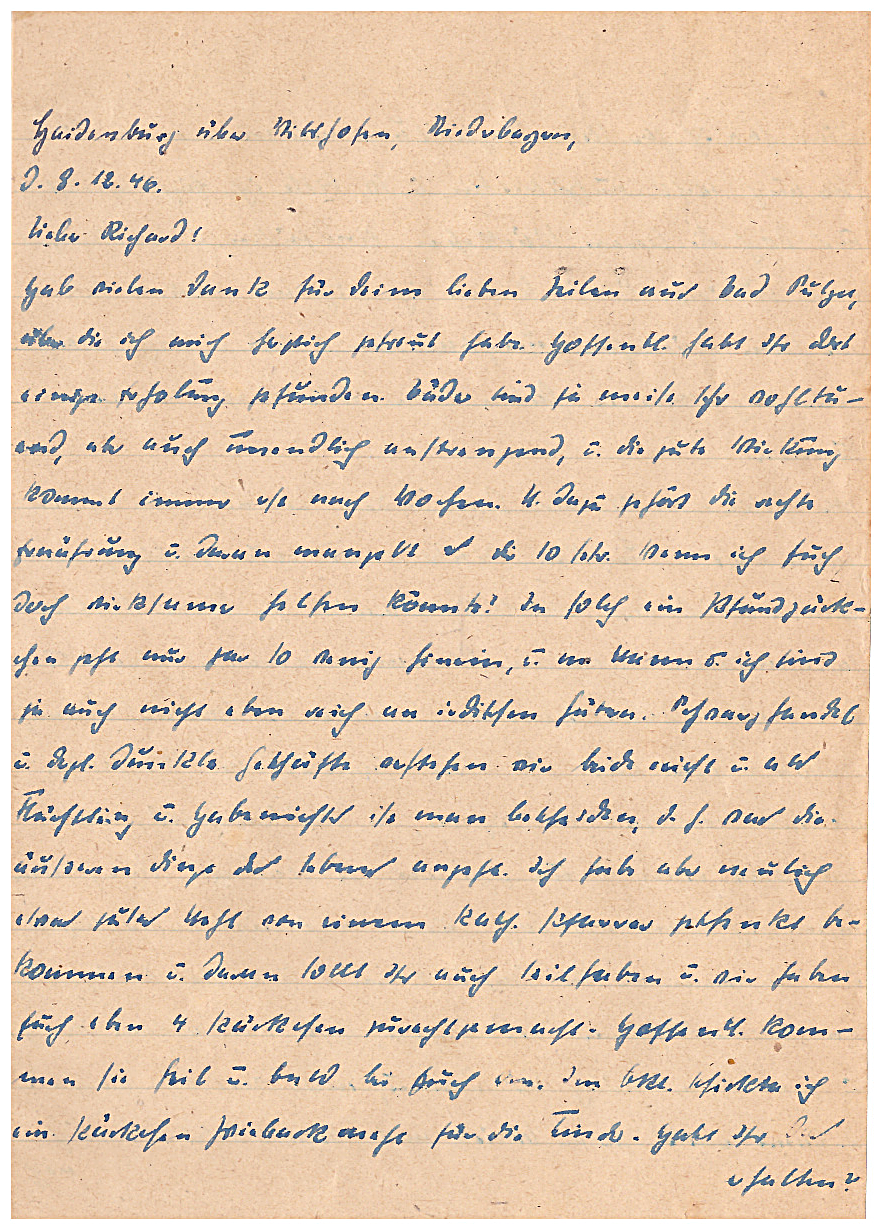 Haidenburg über Vilshofen, Niederbayern,
d. 8.12.46.
Lieber Richard!
Hab vielen Dank für Deine lieben Zeilen aus Bad Sulza,
über die ich mich herzlich gefreut habe. Hoffentl. habt Ihr dort
einige Erholung gefunden. Bäder sind ja meist sehr wohltu-
end, aber auch unendlich anstrengend, u. die gute Wirkung
kommt immer erst nach Wochen. U. dazu gehört die rechte
Ernährung u. daran mangelt es dir so sehr. Wenn ich Euch
doch wirksamer helfen könnte! In solch ein Pfundpäck-
chen geht nur gar so wenig hinein, u. u. ich sind
ja auch nicht eben reich an irdischen Gütern. Schwarzhandel
u. dergl. dunkle Geschäfte verstehen wir beide nicht u. als
Flüchtling u. Habenichts ist man bescheiden, d. h. was die
äußeren Dinge des Lebens angeht. Ich habe aber neulich
etwas gutes Mehl von einem kath. Pfarrer geschenkt be-
kommen u. daran sollt Ihr auch teilhaben u. wir haben
Euch eben 4 Päckchen zurechtgemacht. Hoffentl. kom-
men sie heil u. bald bei Euch an. Im Okt. schickte ich
ein Päckchen Zwiebackmehl für die Kinder. Habt Ihr
erhalten?